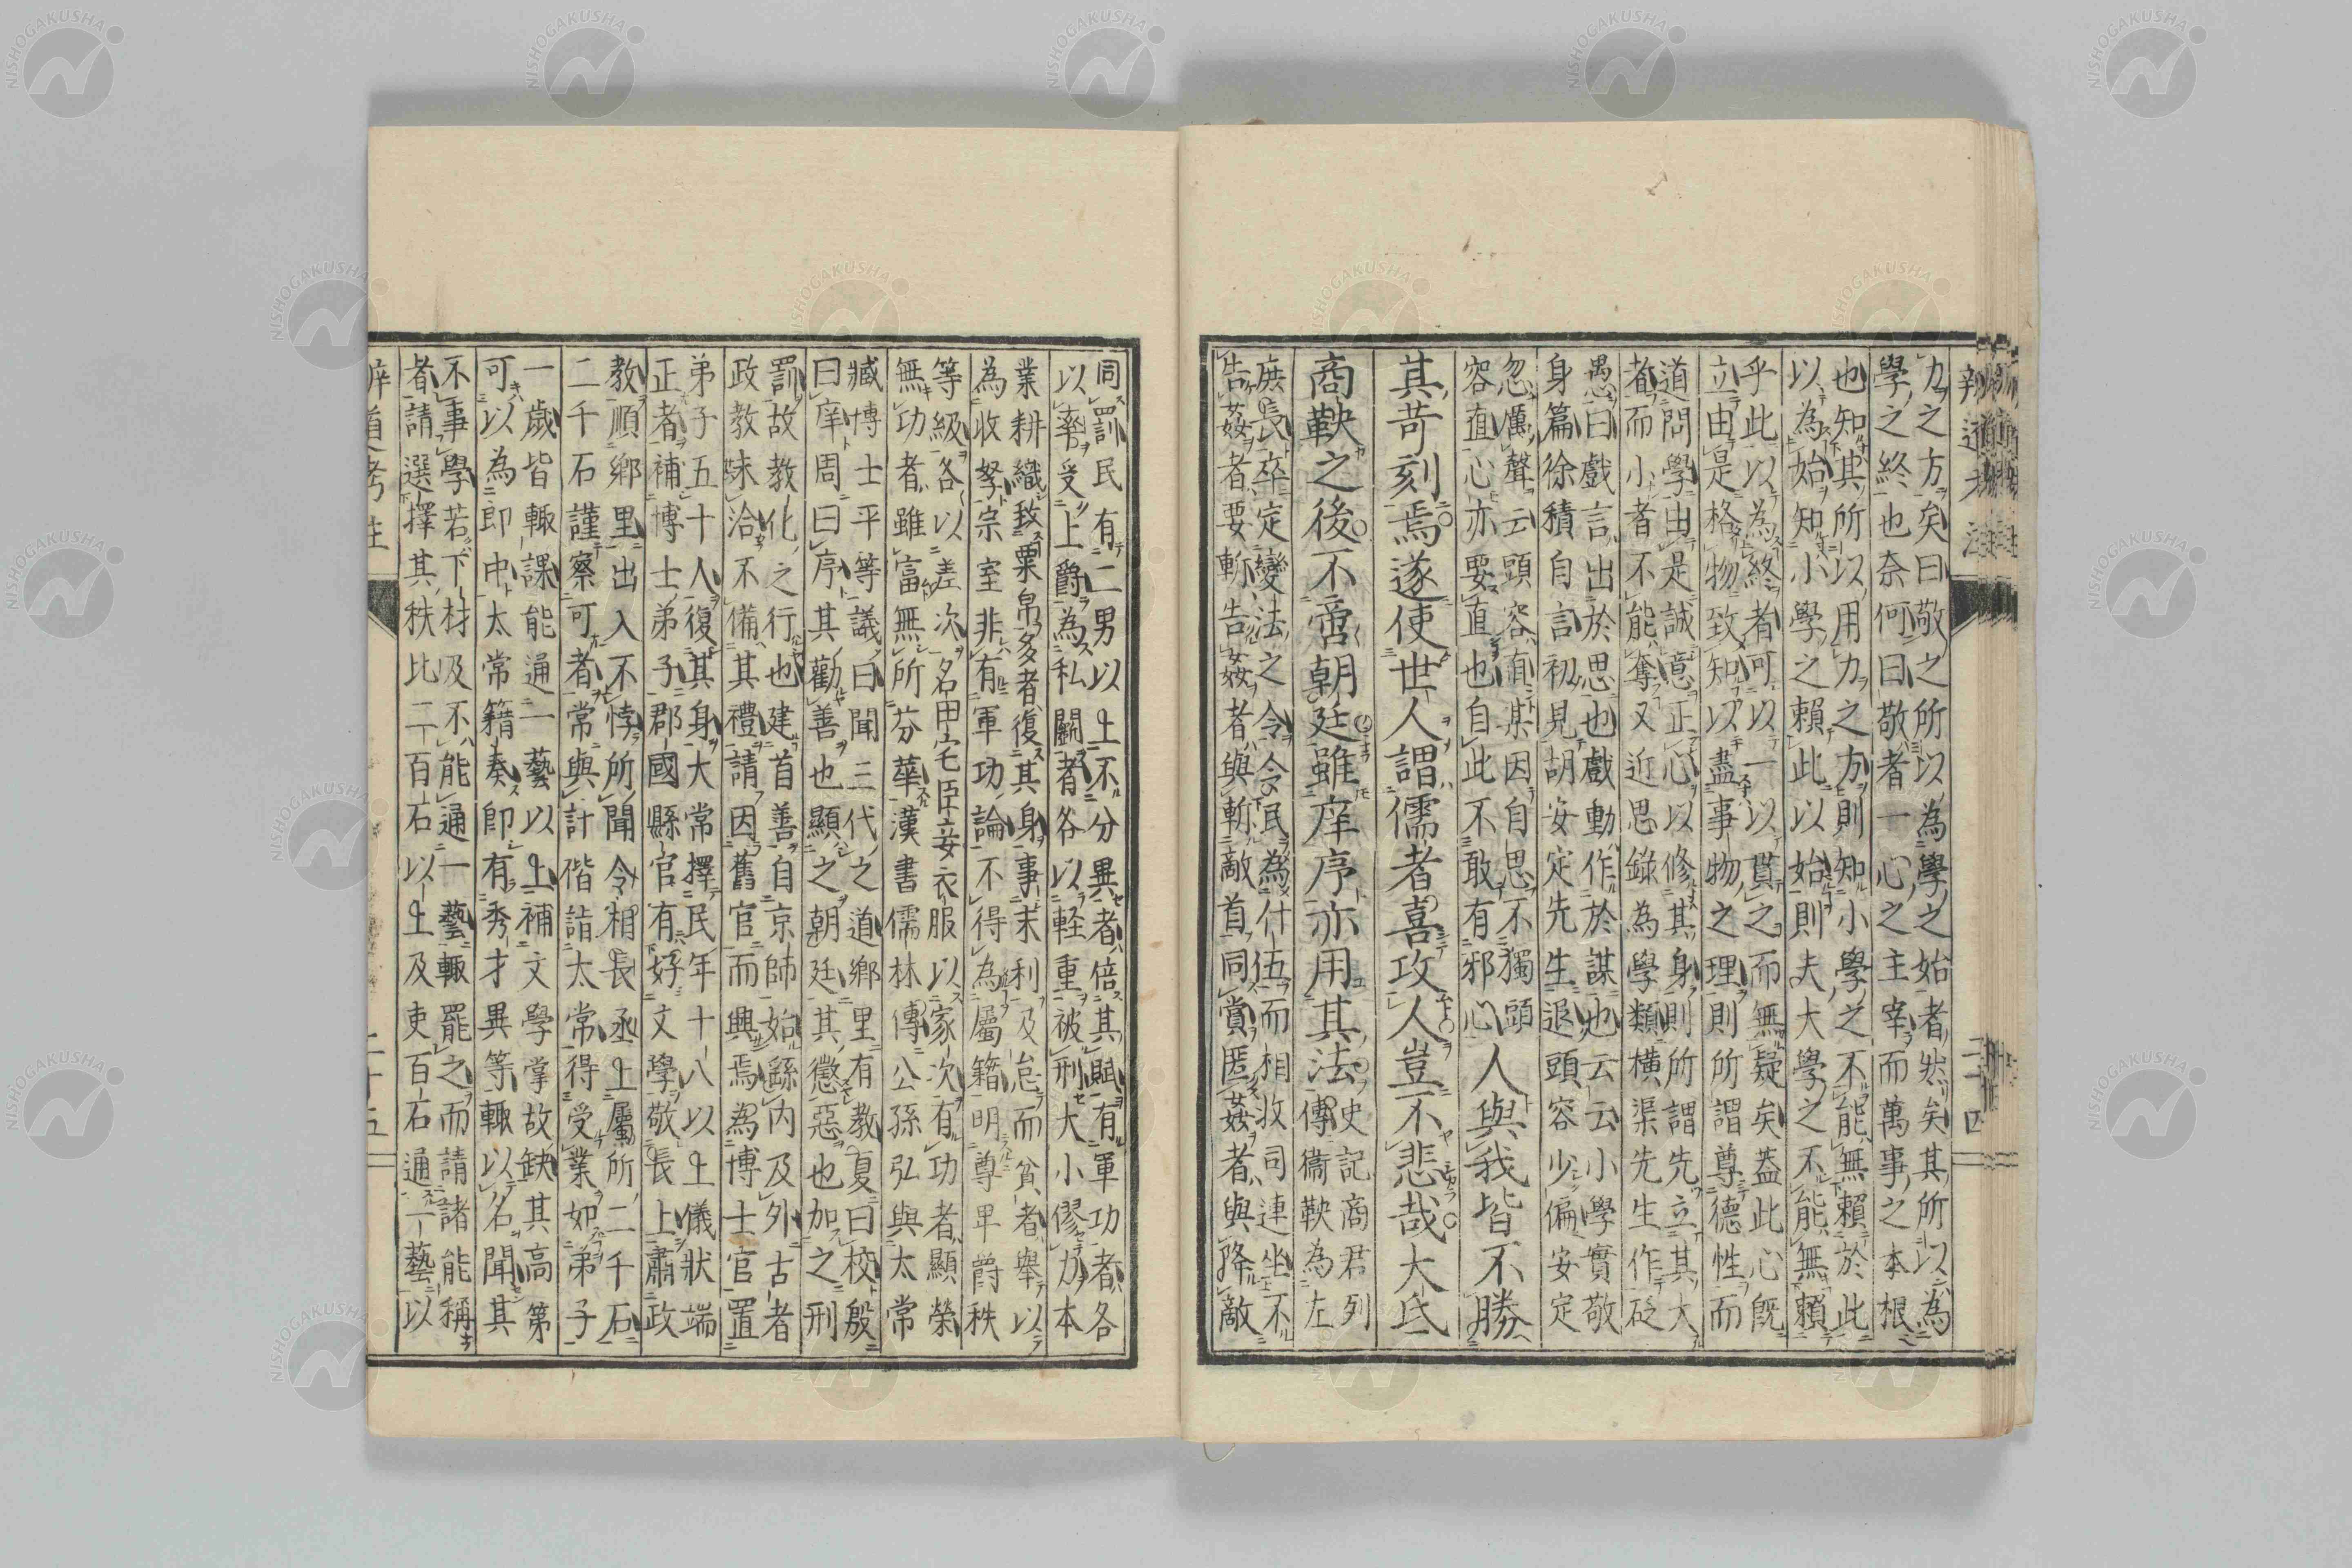 力之方矣曰敬之所以為學之始者狀矣其所以為
學之終也奈何曰敬者一心之主宰而萬事之本根
也知其所以用力之方則知小學之不能無賴於此
以為始知小學之賴此以始則夫大學之不能無賴
乎此以為終者可以一以貫之而無疑矣蓋此心既
立由是格物致知以盡事物之理則所謂尊德性而
道問學由是誠意正心以修其身則所謂先立其大
者而小者不能奪又近思錄為學類橫渠先生作砭
愚曰戲言出於思也戲動作於謀也云云小學實敬
身篇徐積自言初見胡安定先生退頭容少偏安定
忽厲聲云頭容直某因自思不獨頭
容直心亦要直也自此不敢有邪心人與我皆不勝
其苛刻焉遂使世人謂儒者喜攻人豈不悲哉大氐
商鞅之後不啻朝廷雖庠序亦用其法史記商君列
傳衞鞅為左
庶長卒定變法之令令民為什伍而相收司連坐不
告姦者要斬告姦者與斬敵首同賞匿姦者與降敵
同罰民有二男以上不分異者倍其賦有軍功者各
以率受上爵為私鬭者各以輕重被刑大小僇力本
業耕織致粟帛多者復其身事末利及怠而貧者舉以
為收孥宗室非有軍功論不得為屬籍明尊卑爵秩
等級各以差次名田宅臣妾衣服以家次有功者顯榮
無功者雖富無所芬華漢書儒林傳公孫弘與太常
臧博士平等議曰聞三代之道鄉里有教夏曰校殷
曰庠周曰序其勸善也顯之朝廷其懲惡也加之刑
罰故教化之行也建首善自京師始繇內及外古者
政教未洽不備其禮請因舊官而興焉為博士官置
弟子五十人復其身大常擇民年十八以上儀狀端
正者補博士弟子郡國縣官有好文學敬長上肅政
教順鄉里出入不悖所聞令相長丞上屬所二千石
二千石謹察可者常與計偕詣太常得受業如弟子
一歲皆輒課能通一藝以上補文學掌故缺其高第
可以為即中太常籍奏即有秀才異等輒以名聞其
不事學若下材及不能通一藝輒罷之而請諸能稱
者請選擇其秩比二百石以上及吏百石通一藝以